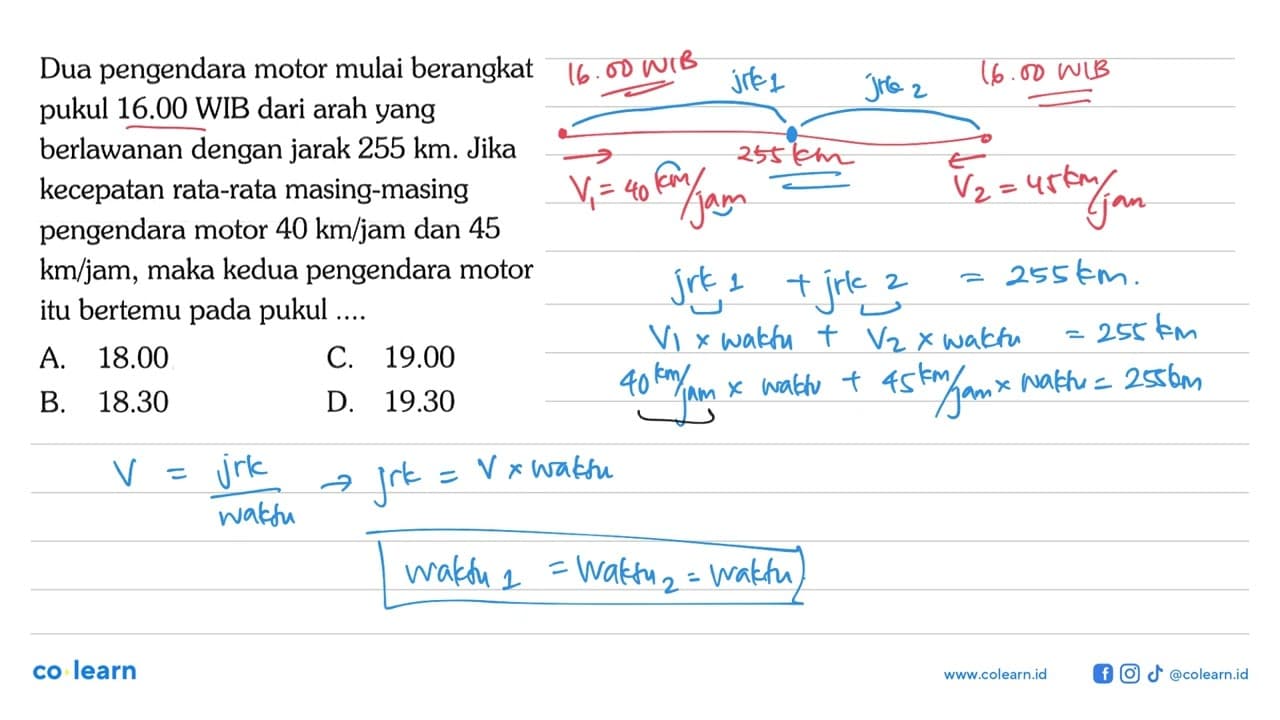 Dua pengendara motor mulai berangkat
pukul 16.00 WIB dari arah yang
berlawanan dengan jarak 255 km. Jika
kecepatan rata-rata masing-masing
pengendara motor 40 km/jam dan 45
km/jam, maka kedua pengendara motor
itu bertemu pada pukul ....
A. 18.00 C. 19.00
B. 18.30 D. 19.30
16.00 WIB jrk 1 jrk 2 16.00 WIB
255 km
V₁ = 40 km/jam V₂ = 45 km/jam
jrk 1 + jrk 2 = 255 km.
V₁ × waktu + V₂ × waktu = 255 km
40 km/jam × waktu + 45 km/jam × waktu = 255 km
V = jrk/waktu → jrk = V × waktu
waktu 1 = waktu₂ = waktu
co learn
www.colearn.id @colearn.id